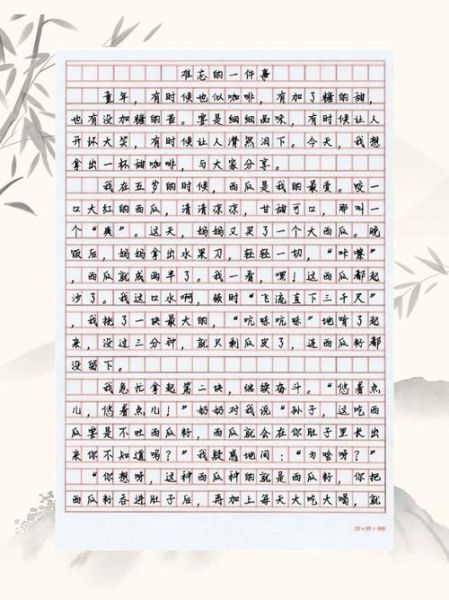 难忘的一件事
童年，有时候也似咖啡，有加了糖的甜，
也有没加糖的苦。要是细细品味，有时候让人
开怀大笑，有时候让人潸然泪下。今天，我想
拿出一杯甜咖啡，与大家分享。
我在五岁的时候，西瓜是我的最爱。咬一
口大红的西瓜，清清凉凉，甘甜可口，那叫一
个“爽”。这天，妈妈又买了一个大西瓜。晚
饭后，妈妈拿出水果刀，轻轻一切，“咔嚓”
，西瓜就成两半了。我一看，嘿！这西瓜都起
沙了。我这口水啊，顿时“飞流直下三千尺”
，我挑了一块最大的，“吭哧吭哧”地啃了起
来，没过三分钟，就只剩瓜皮了，连西瓜籽都
没留下。
我急忙拿起第二块，继续奋斗。“悠着点
儿，悠着点儿！”奶奶对我说“孙子，这吃西
瓜要是不吐西瓜籽，西瓜就会在你肚子里长出
来你不知道吗？”我疑惑地问：“为啥呀？”
“你想呀，这种西瓜种的就是西瓜籽，你把
西瓜籽吞进肚子后，再加上每天大吃大喝，就